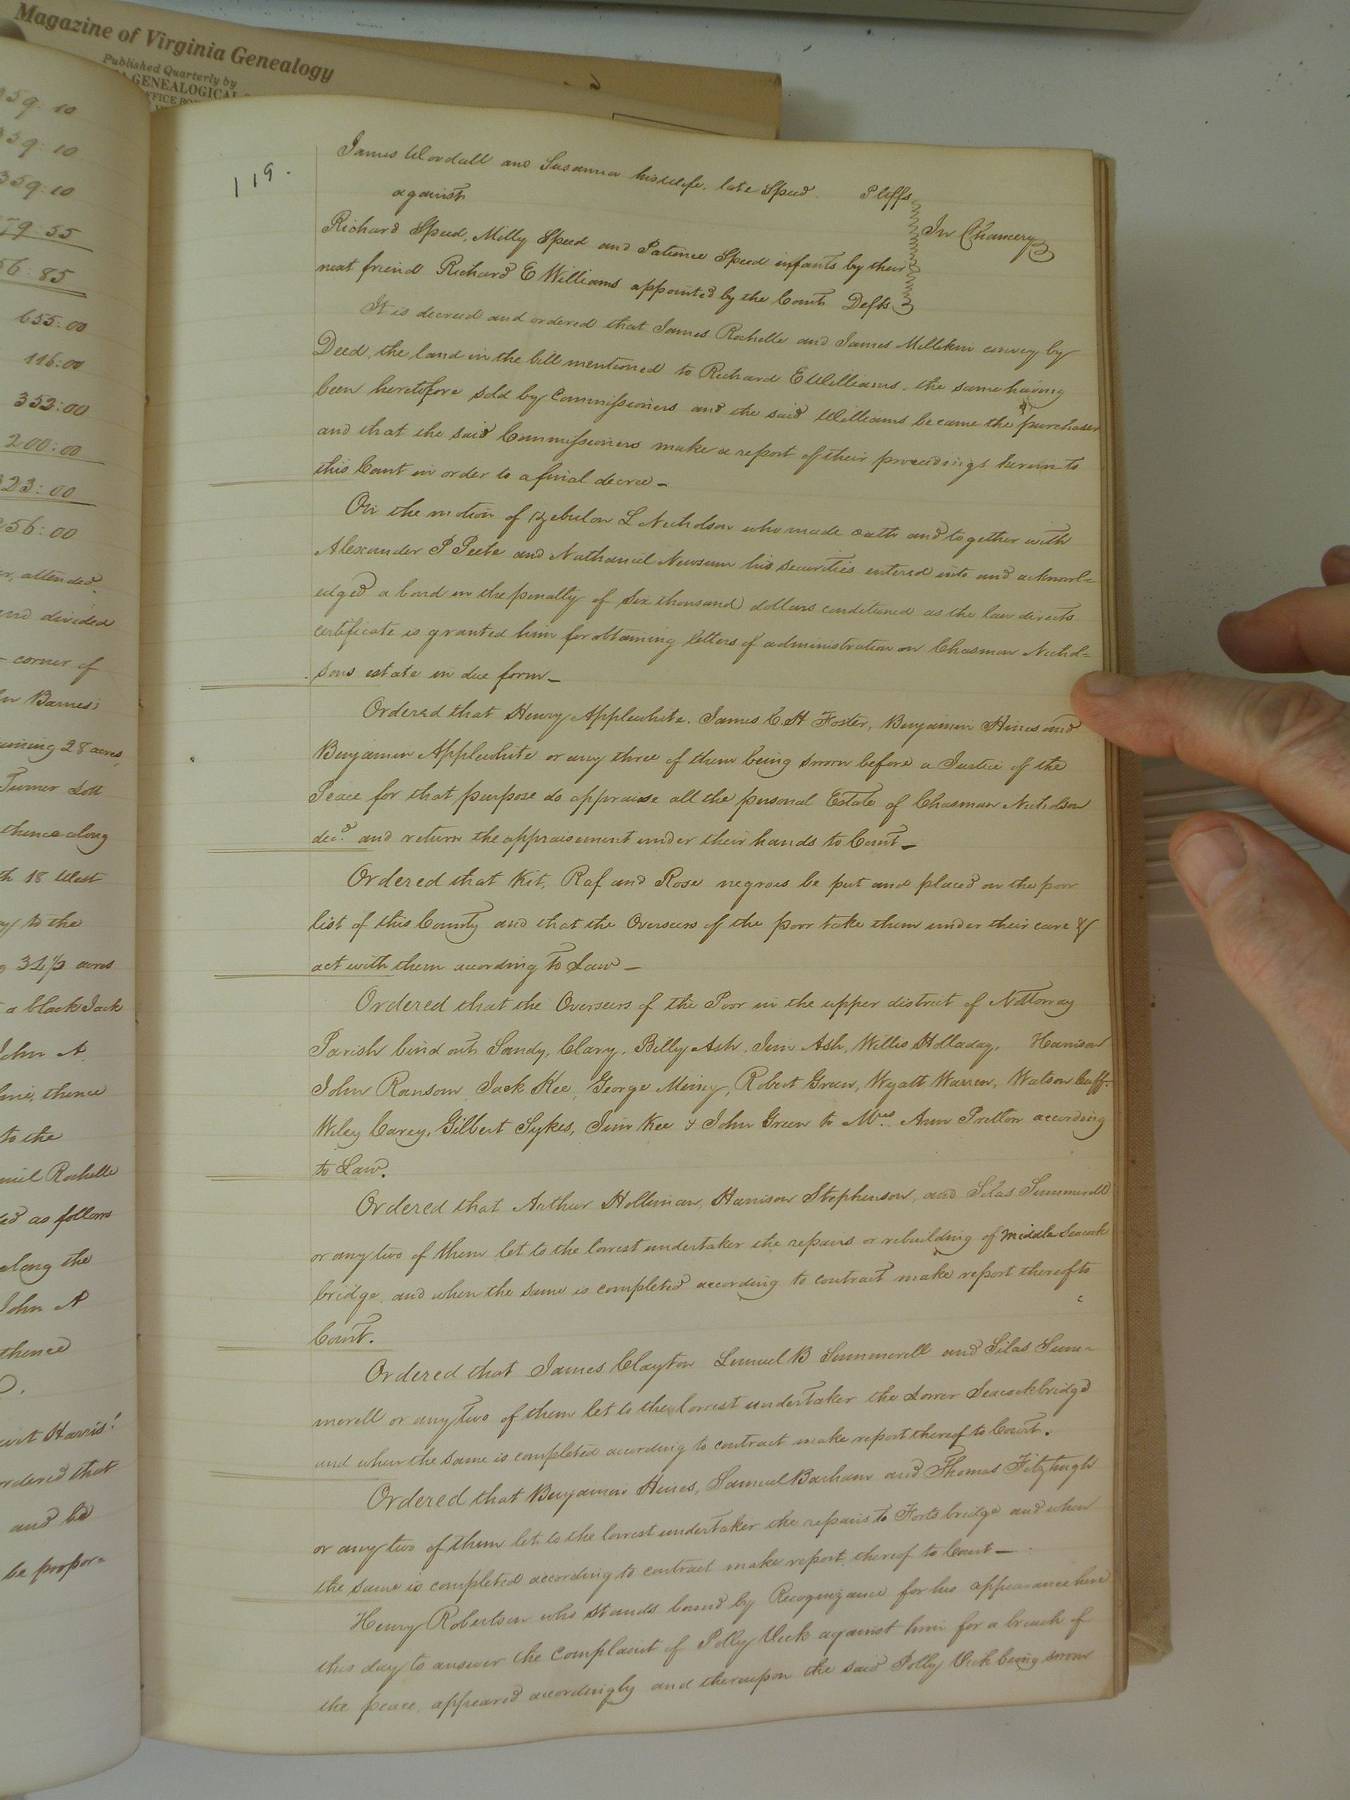 Magazine of Virginia Genealogy
Published Quarterly by
GENEALOGICAL
359:10
359:10
359:10
79:55
56:85
655:00
116:00
353:00
200:00
323:00
256:00
attended
and divided
corner of
Barnes'
28 acres,
Turner
thence along
18 West
to the
acres
a black Jack
John A.
line, thence
to the
Rochelle
as follows
along the
John A
thence
Harris'
ordered that
and be
be propor-
119.
James Woodall and Susanna his wife, late Speed Pltffs
against
In Chancery
Richard Speed, Milly Speed and Patience Speed infants by their
next friend Richard E Williams appointed by the Court Defts
It is decreed and ordered that James Rochelle and James Millikin convey by
Deed, the land in the bill mentioned to Richard E Williams, the same having
been heretofore sold by Commissioners and the said Williams became the purchaser
and that the said Commissioners make a report of their proceedings herein to
this Court in order to a final decree_
On the motion of Zebulon L Nicholson who made oath and together with
Alexander P Peete and Nathaniel Newsum his securities entered into and acknowl=
edged a bond in the penalty of six thousand dollars conditioned as the law directs
certificate is granted him for obtaining letters of administration on Chasman Nichol=
sons estate in due form_
Ordered that Henry Applewhite, James C H Foster, Benjamin Hines and
Benjamin Applewhite or any three of them being sworn before a Justice of the
Peace for that purpose do appraise all the personal Estate of Chasman Nicholson
decd. and return the appraisement under their hands to Court_
Ordered that Kit, Raf and Rose negroes be put and placed on the poor
list of this County and that the Overseers of the poor take them under their care &
act with them according to Law_
Ordered that the Overseers of the Poor in the upper district of Nottoway
Parish bind out Sandy, Clary, Billy Ash, Jim Ash, Willis Holladay, Harrison
John Ransom, Jack Kee, George Mason, Robert Green, Wyatt Warren, Watson Cuff
Wiley Carey, Gilbert Sykes, Jim Kee & John Green to Mrs. Ann Pretlow according
to Law.
Ordered that Arthur Holliman, Harrison Stephenson, and Silas Summerell
or any two of them let to the lowest undertaker the repairs or rebuilding of Middle Seacock
bridge, and when the same is completed according to contract make report thereof to
Court.
Ordered that James Clayton Lemuel B Summerell and Silas Sum=
merell or any two of them let to the lowest undertaker the Lower Seacock bridge
and when the same is completed according to contract make report thereof to Court.
Ordered that Benjamin Hines, Samuel Barham and Thomas Fitzhugh
or any two of them let to the lowest undertaker the repairs to Forts bridge and when
the same is completed according to contract make report thereof to Court_
Henry Robertson who stands bound by Recognizance for his appearance here
this day to answer the complaint of Polly Vick against him for a breach of
the peace, appeared accordingly and thereupon the said Polly Vick being sworn